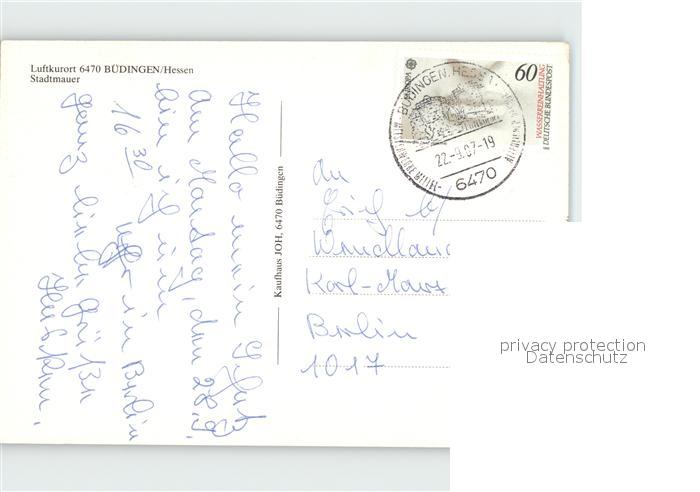 Luftkurort 6470 BÜDINGEN/Hessen
Stadtmauer
Hallo mein
Am Montag, den 28.9.
bin ich um
16 30 Uhr in Berlin
ganz liebe Grüße
Kaufhaus JOH, 6470 Büdingen
EUROPA
60
WASSERREINHALTUNG
DEUTSCHE BUNDESPOST
BÜDINGEN, HESS 1
22.-9.87-19
6470
An
Wendland
Karl-Marx
Berlin
1017
privacy protection
Datenschutz